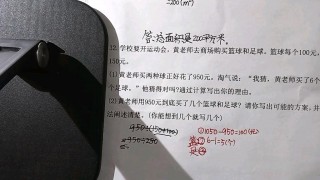 =200(m²)
答:这面积是200平方米。
12.学校要开运动会,黄老师去商场购买篮球和足球。篮球每个100元,
150元。
(1)黄老师买两种球正好花了950元。淘气说:“我猜,黄老师买了6个
个足球。”他猜得对吗?通过计算写出你的理由。
(2)黄老师用950元到底买了几个篮球和足球?请你写出可能的方案,并
法阐述清楚。(你能想到几个就写几个)
=950÷250
①1050-950=100(元)
②6-1=5(个)